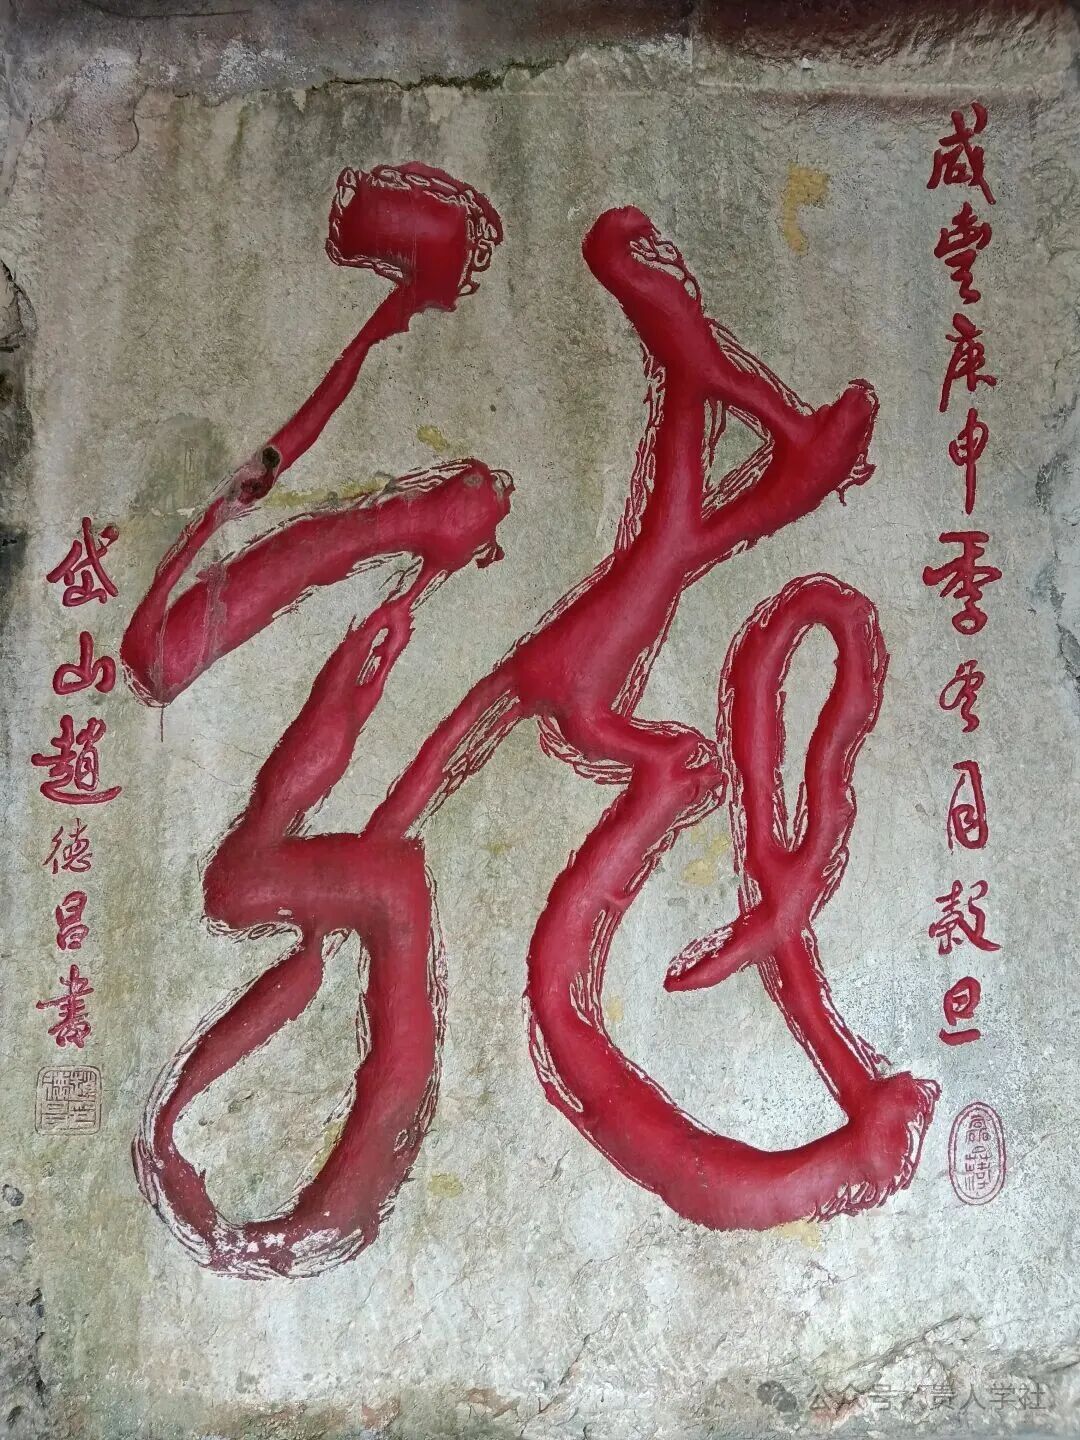 咸豐庚申季冬月穀旦
龍
岱山趙德昌書
公众号·贵人学社